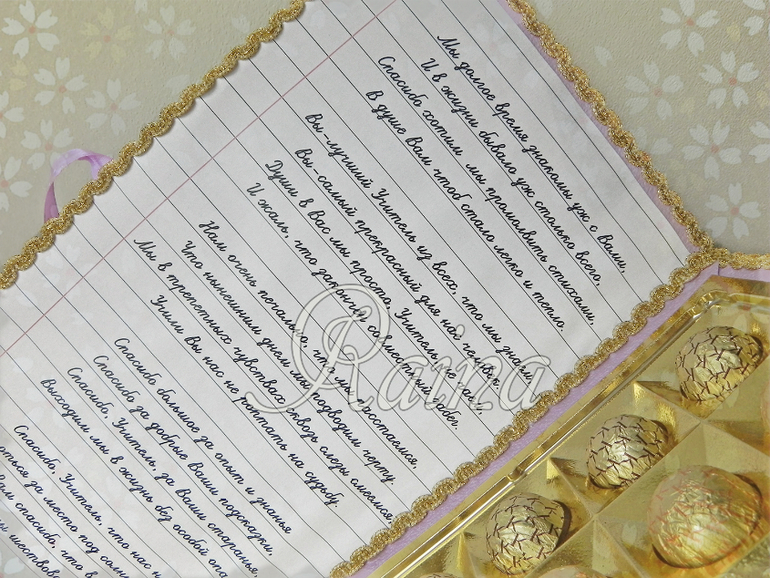 Мы долгое время знакомы уж с Вами,
И в жизни бывало уж столько всего,
Спасибо хотим мы промолвить стихами,
В душе Вам чтоб стало легко и тепло.
Вы - лучший Учитель из всех, что мы знаем,
Вы - самый прекрасный для нас человек.
Души в Вас мы просто, Учитель, не чаем,
И жаль, что закончен совместный забег.
Нам очень печально, что мы расстаемся,
Что нынешним днем мы подводим черту.
Мы в трепетных чувствах сквозь слезы смеемся,
Учили Вы нас не роптать на судьбу.
Спасибо большое за опыт и знанья
Спасибо за добрые Ваши подсказки,
Спасибо, Учитель, за Ваши старанья,
Выходим мы в жизнь без особой
Спасибо, Учитель, что нас
за место под
спасибо, что в
Raina